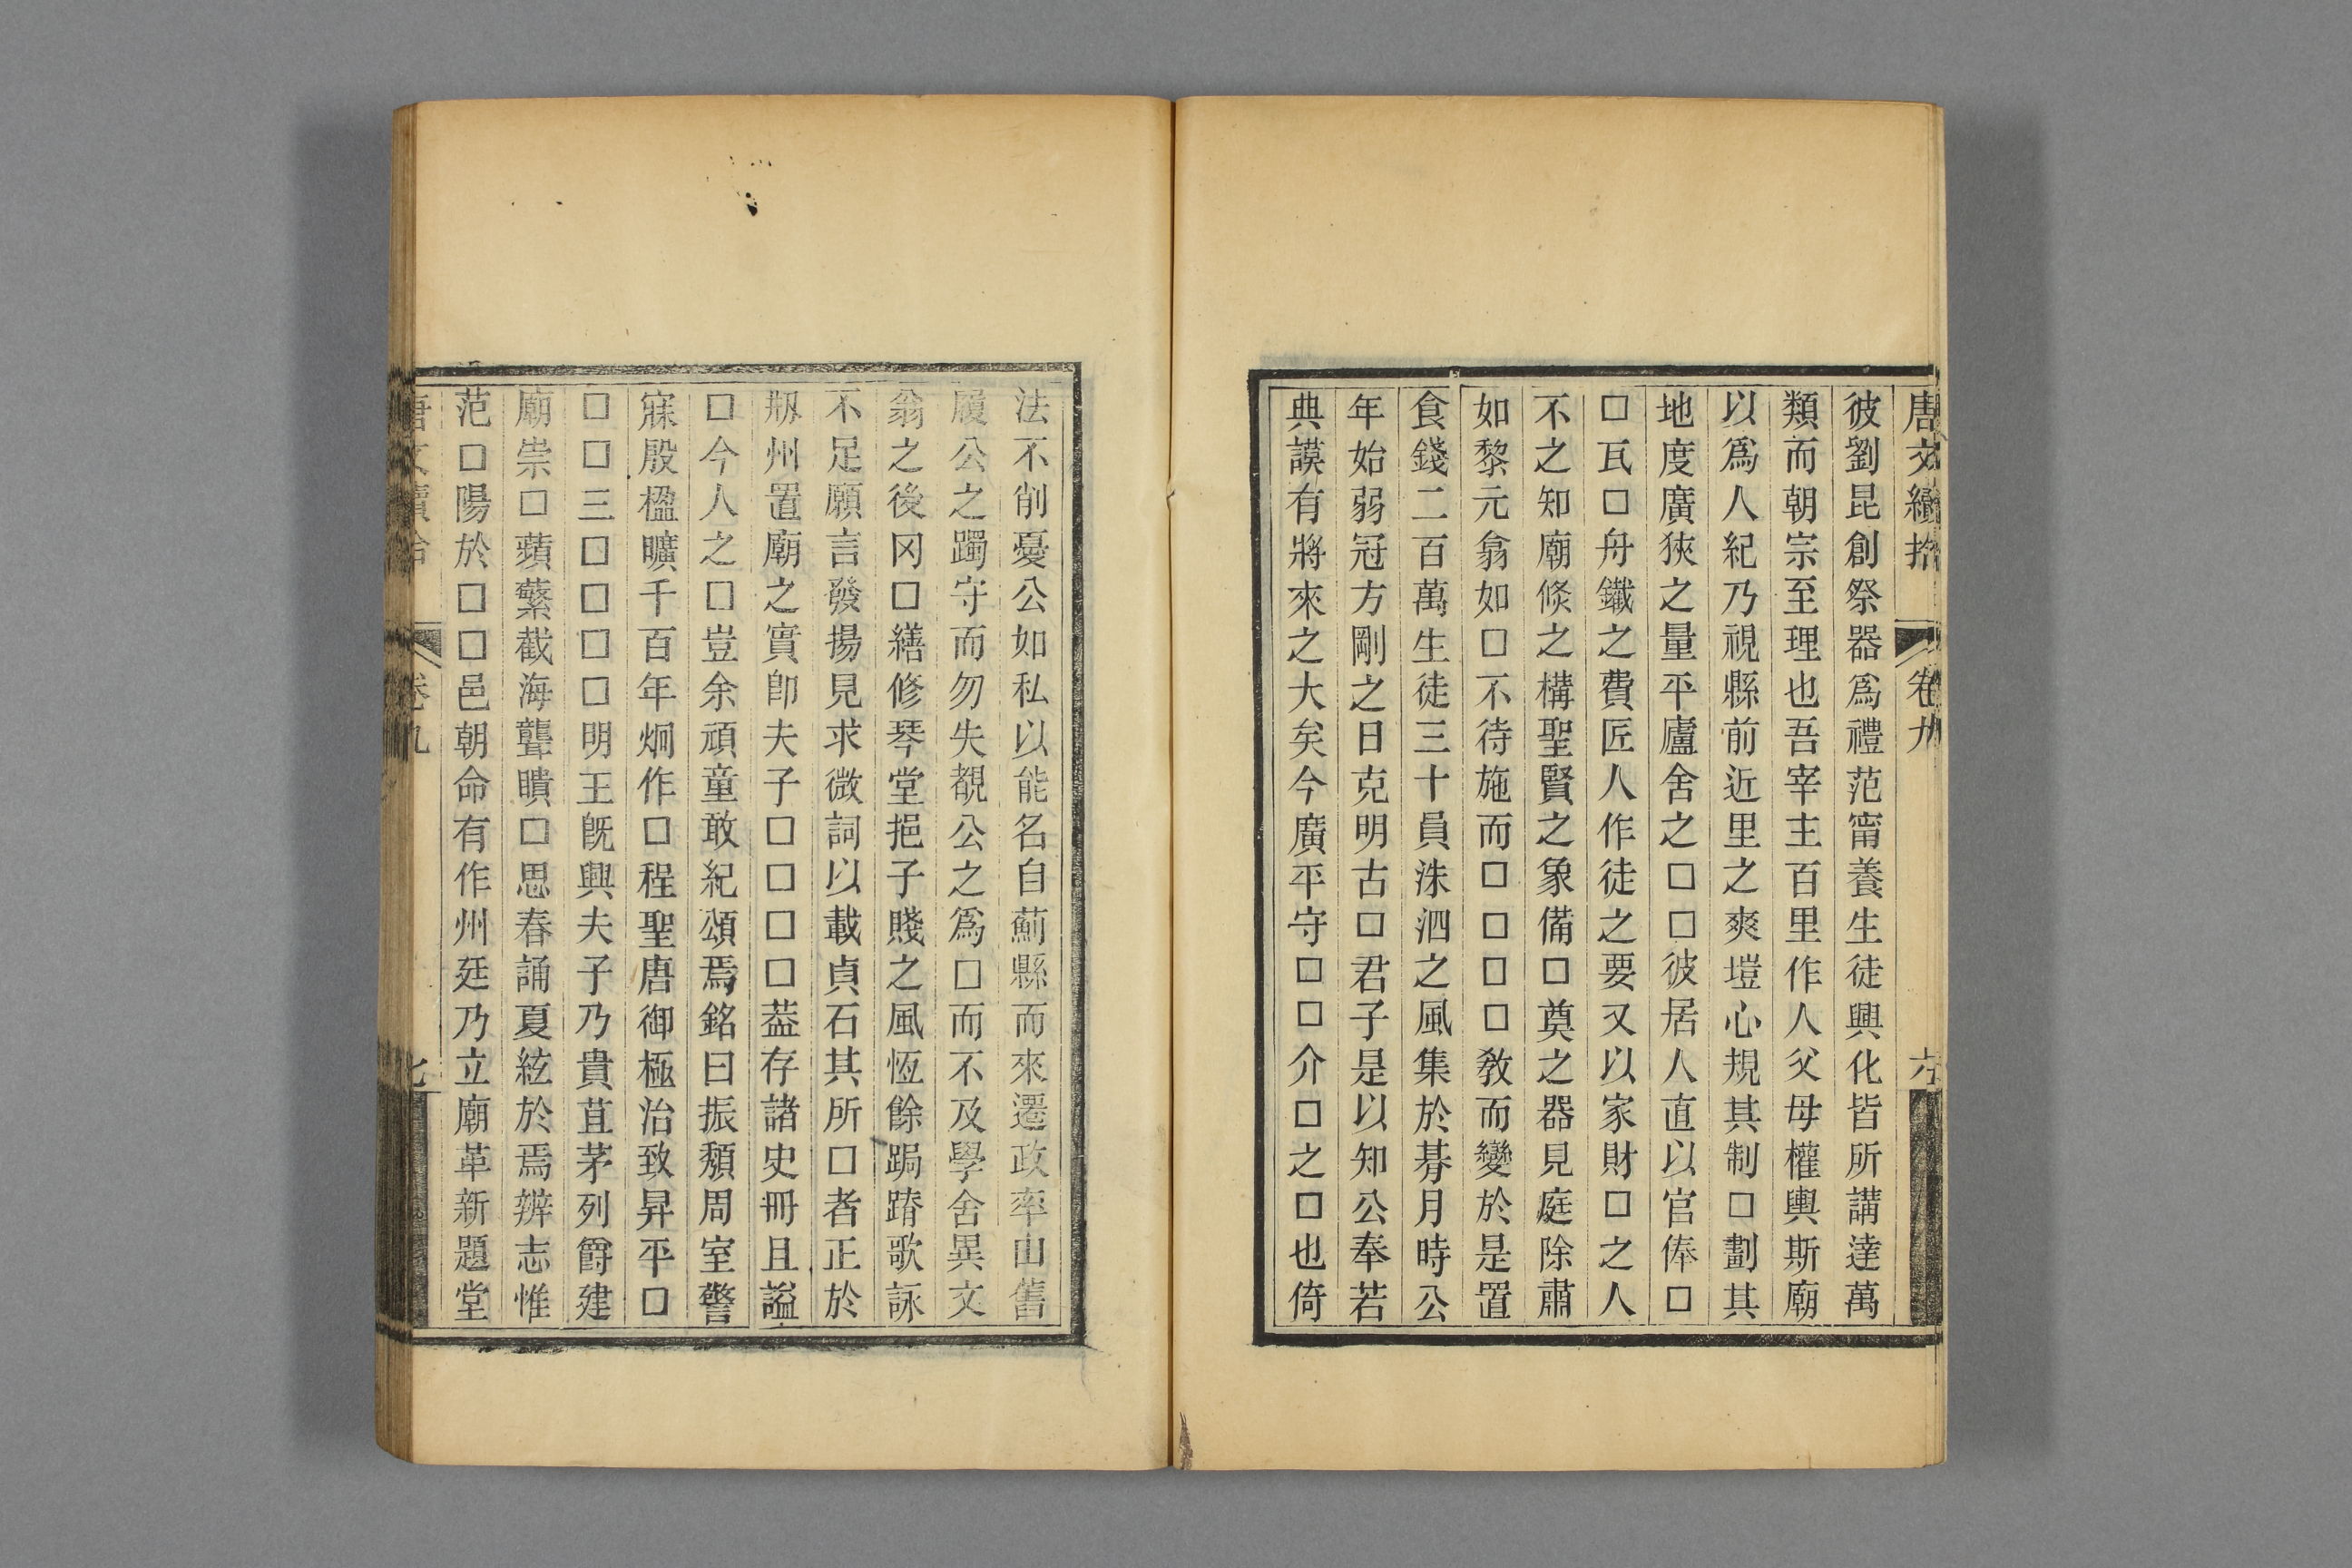 唐文續拾 卷九 六
彼劉昆創祭器爲禮范甯養生徒興化皆所講達萬
類而朝宗至理也吾宰主百里作人父母權輿斯廟
以爲人紀乃視縣前近里之爽塏心規其制□劃其
地度廣狹之量平廬舍之□□彼居人直以官俸□
□瓦□舟鐵之費匠人作徒之要又以家財□之人
不之知廟倏之構聖賢之象備□奠之器見庭除肅
如黎元翕如□不待施而□□□□敎而變於是置
食錢二百萬生徒三十員洙泗之風集於朞月時公
年始弱冠方剛之日克明古□君子是以知公奉若
典謨有將來之大矣今廣平守□□介□之□也倚
法不削憂公如私以能名自薊縣而來遷政率由舊
履公之躅守而勿失覩公之爲□而不及學舍異文
翁之後冈□繕修琴堂挹子賤之風恆餘跼蹐歌詠
不足願言發揚見求微詞以載貞石其所□者正於
剏州置廟之實卽夫子□□□□葢存諸史冊且謚
□今人之□豈余頑童敢紀頌焉銘曰振頹周室警
寐殷楹曠千百年炯作□程聖唐御極治致昇平□
□□三□□□□明王旣興夫子乃貴苴茅列爵建
廟祟□蘋蘩截海聾瞶□思春誦夏絃於焉辨志惟
范□陽於□□邑朝命有作州廷乃立廟革新題堂
唐文續拾 卷九 七